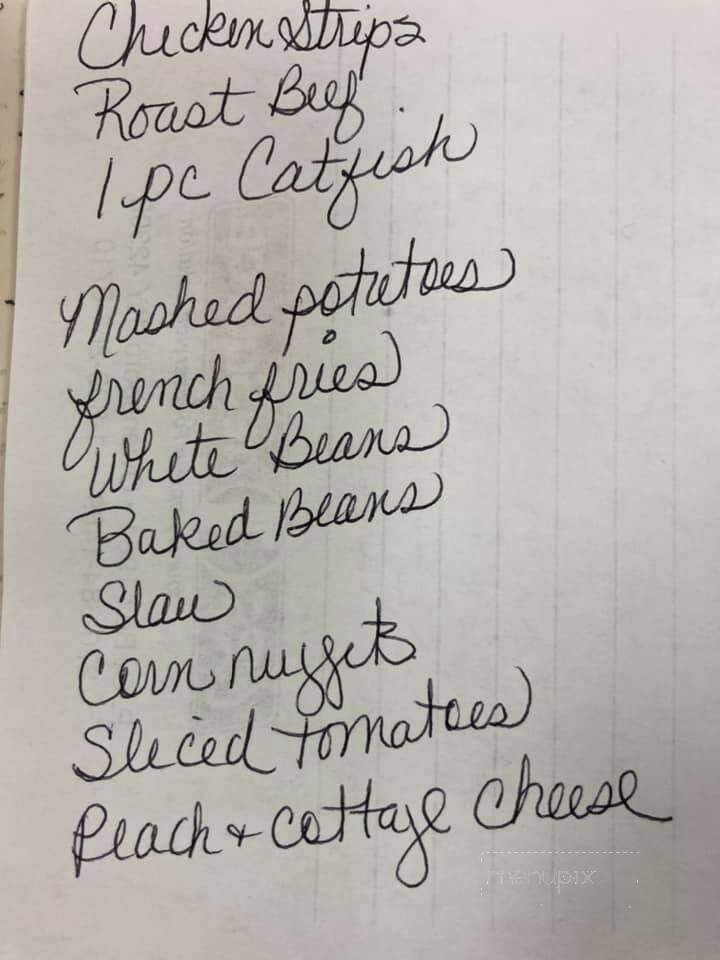 Chicken Strips
Roast Beef
1 pc Catfish
Mashed potatoes
french fries
White Beans
Baked Beans
Slaw
Corn nuggets
Sliced tomatoes
Peach & cottage cheese
menupix